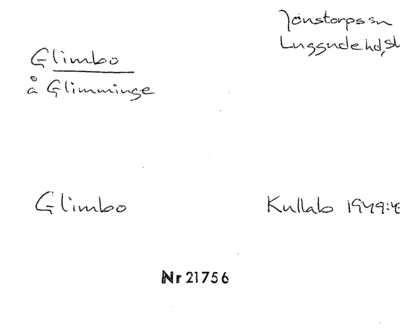 Jonstorps sn
Luggude hd, sk
Glimbo
å Glimminge
Glimbo
Kullab 1949:
Nr 21756